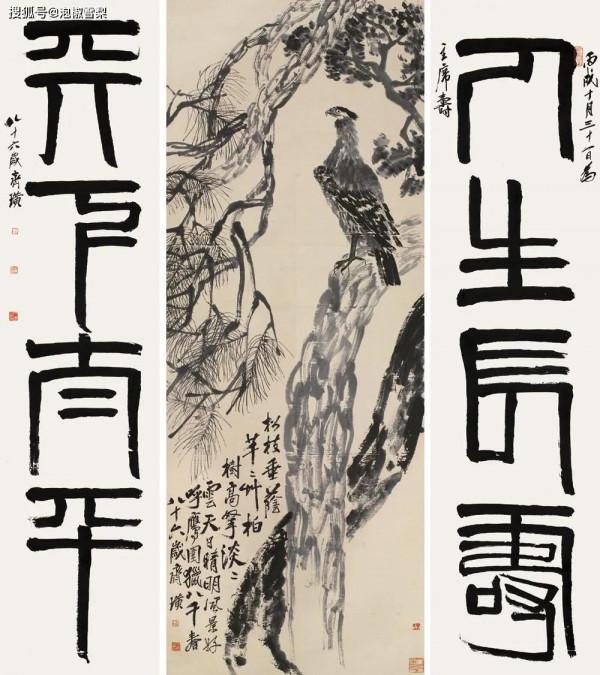 搜狐号@泡椒雪梨
丙戌十月三十一日為
人生長壽
主席壽
松枝垂蔭
芊〻艸柏
樹高擎淡〻
雲天日晴明風景好
呼鷹圍獵八千春
八十六歲齊璜
天下太平
八十六歲齊璜